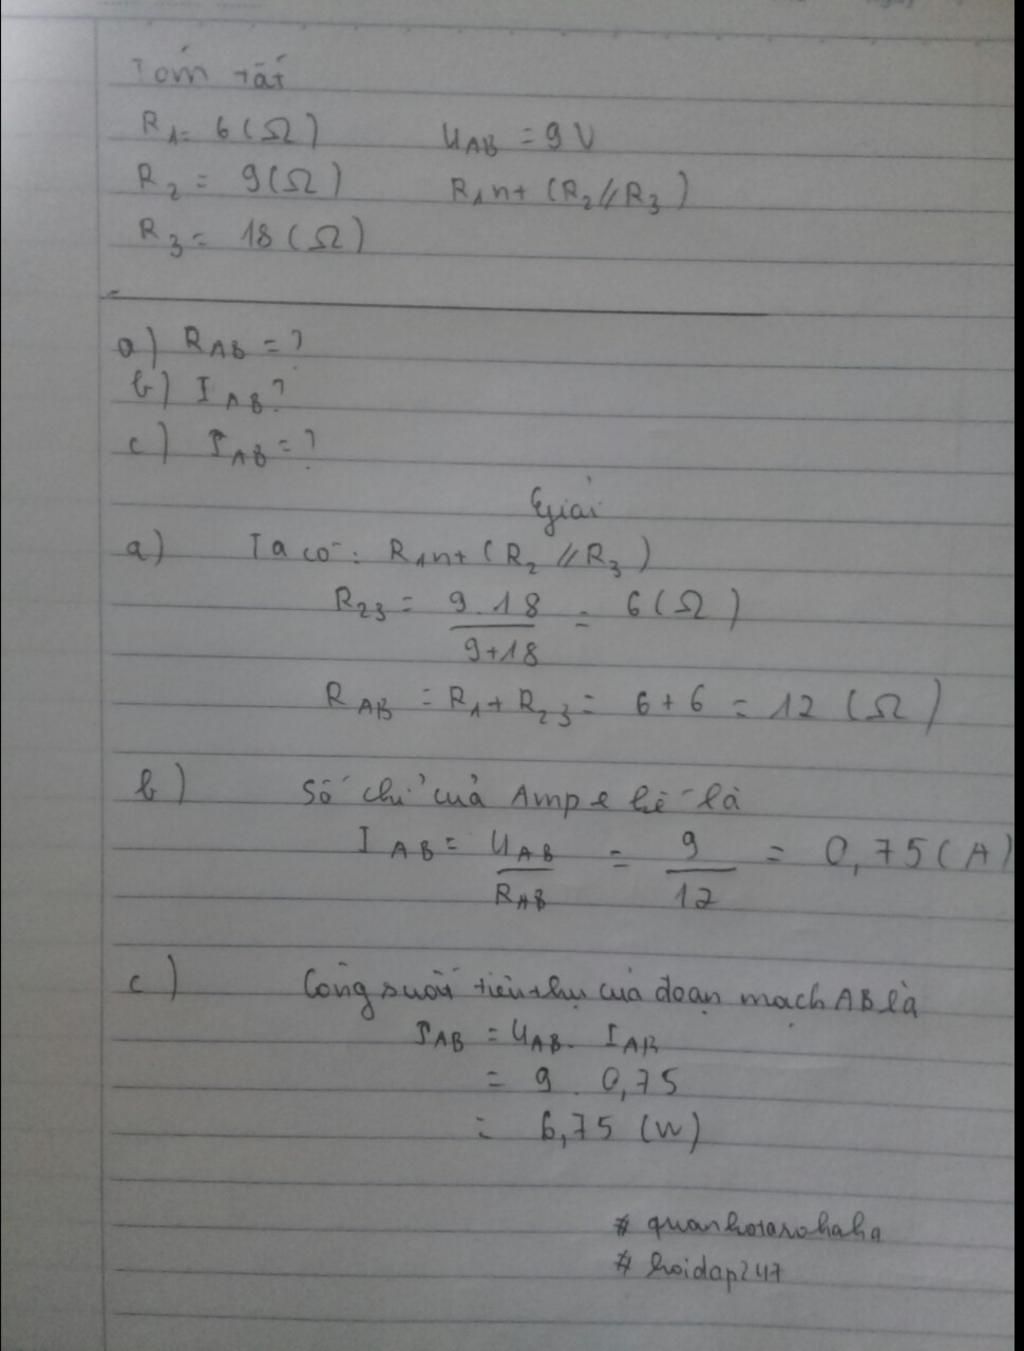 Tóm tắt
R1 = 6(Ω) UAB = 9V
R2 = 9(Ω) R1nt (R2//R3)
R3 = 18(Ω)
a) RAB = ?
b) IAB?
c) PAB = ?
Giải
a) Ta có: R1nt (R2 // R3)
R23 = 9.18 / 9+18 = 6(Ω)
RAB = R1+R23 = 6+6 = 12 (Ω)
b) Số chỉ của Ampe kế là
IAB = UAB / RAB = 9 / 12 = 0,75(A)
c) Công suất tiêu thụ của đoạn mạch AB là
PAB = UAB. IAB
= 9 . 0,75
= 6,75 (W)
# quanhotarohaha
# hoidap247